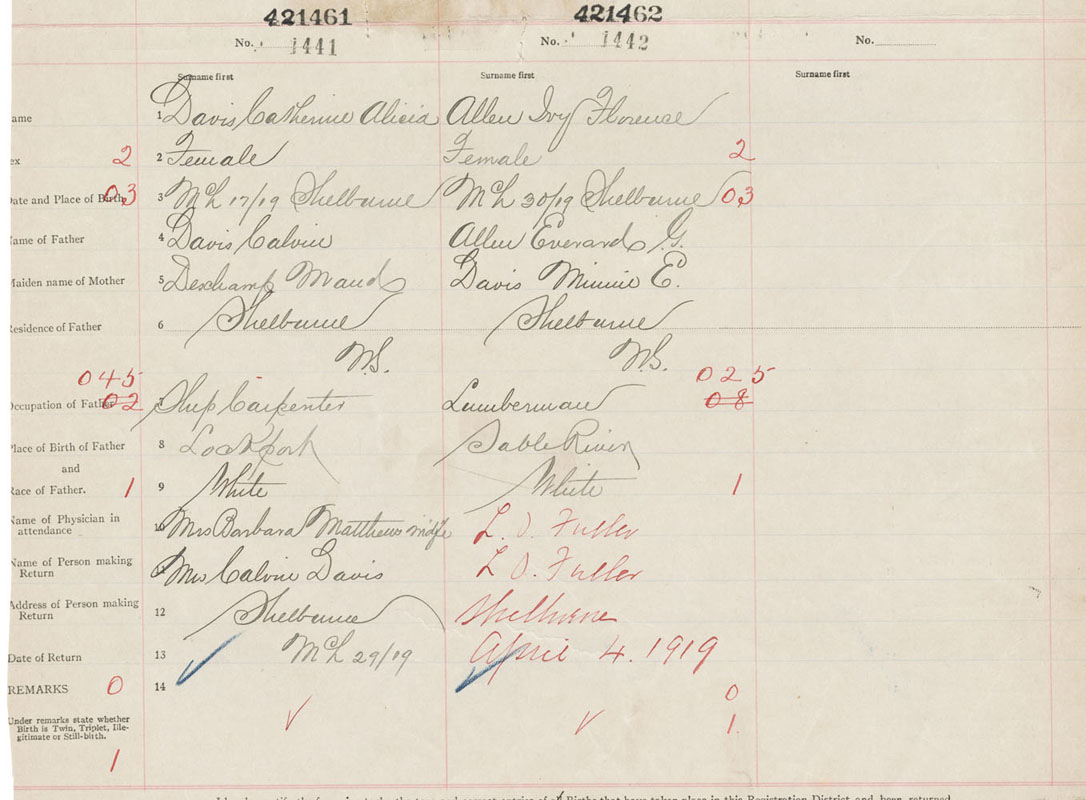 421461 421462
No. 1441 No. 1442 No.
Surname first Surname first Surname first
ame 1 Davis Catherine Alicia Allen Ivy Florence
ex 2 2 Female Female 2
Date and Place of Birth 03 3 Mch 17/19 Shelburne Mch 30/19 Shelburne 03
ame of Father 4 Davis Calvin Allen Everard G.
Maiden name of Mother 5 Deschamp Maud Davis Minnie E.
Residence of Father 6 Shelburne Shelburne
N.S. N.S.
045 025
Occupation of Father 02 7 Ship Carpenter Lumberman 08
Place of Birth of Father 8 Lockport Sable River
and
Race of Father. 1 9 White White 1
Name of Physician in
attendance 10 Mrs Barbara Matthews midfe L. O. Fuller
Name of Person making
Return 11 Mrs Calvin Davis L. O. Fuller
Address of Person making
Return 12 Shelburne Shelburne
Date of Return 13 Mch 29/19 April 4. 1919
REMARKS 0 14 0
Under remarks state whether
Birth is Twin, Triplet, Ille-
gitimate or Still-birth. 1.
1
Births that have taken place in this Registration District and been returned